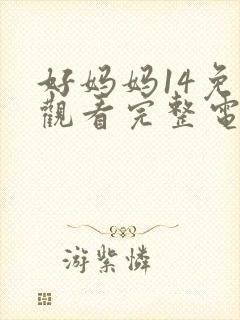 好妈妈14免
觀看完整電
游紫憐